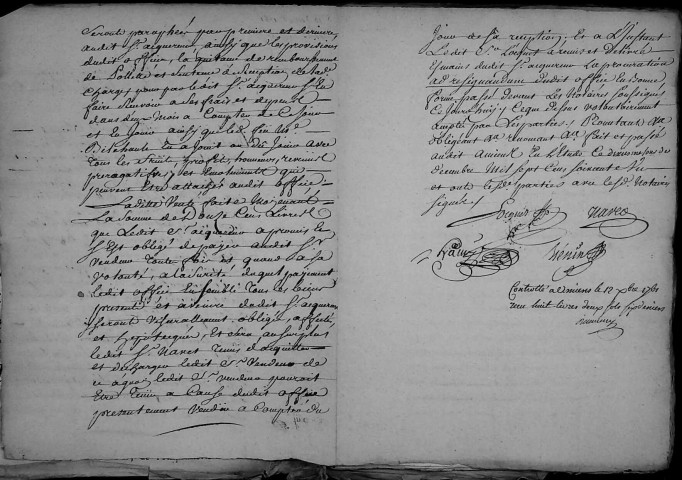 seront paraphés par premiere et derniere
audit Sr. acquereur, ainsy que les provisions
dudit office, la quitance de remboursement
de et sentence de reception,
charge pour par ledit Sr. acquereur d'En
faire a ses frais et depens
dans deux mois a Compter de ce Jour
et En Jouir ainsy que led. feu Me.
En a Joui ou dû Jouir avec
Tous les droits, profits, honneurs, revenus
prerogatives et Emolumens qui
peuvent Etre attachés audit office
Laditte Vente faitte moyenant
La Somme de Douze Cens Livres
que Ledit Sr. acquereur a promis et
s'Est obligé de payer audit Sr.
Vendeur Toutte fois et quand a sa
Volonté, a la sureté duquel payement
ledit office Ensemble Tous les biens
presents et a venir dudit Sr. acquereur
seront obligés, affectés
et hypotequés, Et sera au surplus
ledit Sr. Navet Tenu d'acquitter
et decharger ledit Sr. Vendeur de
ce a quoy ledit Sr. Vendeur pouroit
Etre Tenu a Cause dudit office
presentement Vendu a Compter du
Jour de sa reception, Et a L'Instant
Ledit Sr. a remis et Delivré
Es mains dudit Sr. acquereur La procuration
ad resignandum dudit office En bonne
forme passé devant les Notaires soussignés
Ce Jourd'huy; Ce que dessus volontairement
accepté par Les parties Promettant &a
obligeant &a renonçant &a fait et passé
audit Amiens En l'Etude Ce
decembre Mil sept Cens soixante Un
et ont lesd. parties avec lesd. Notaires
signé
Navet
Controllé a amiens le 12 xbre 1761
reçu huit livres deux sols